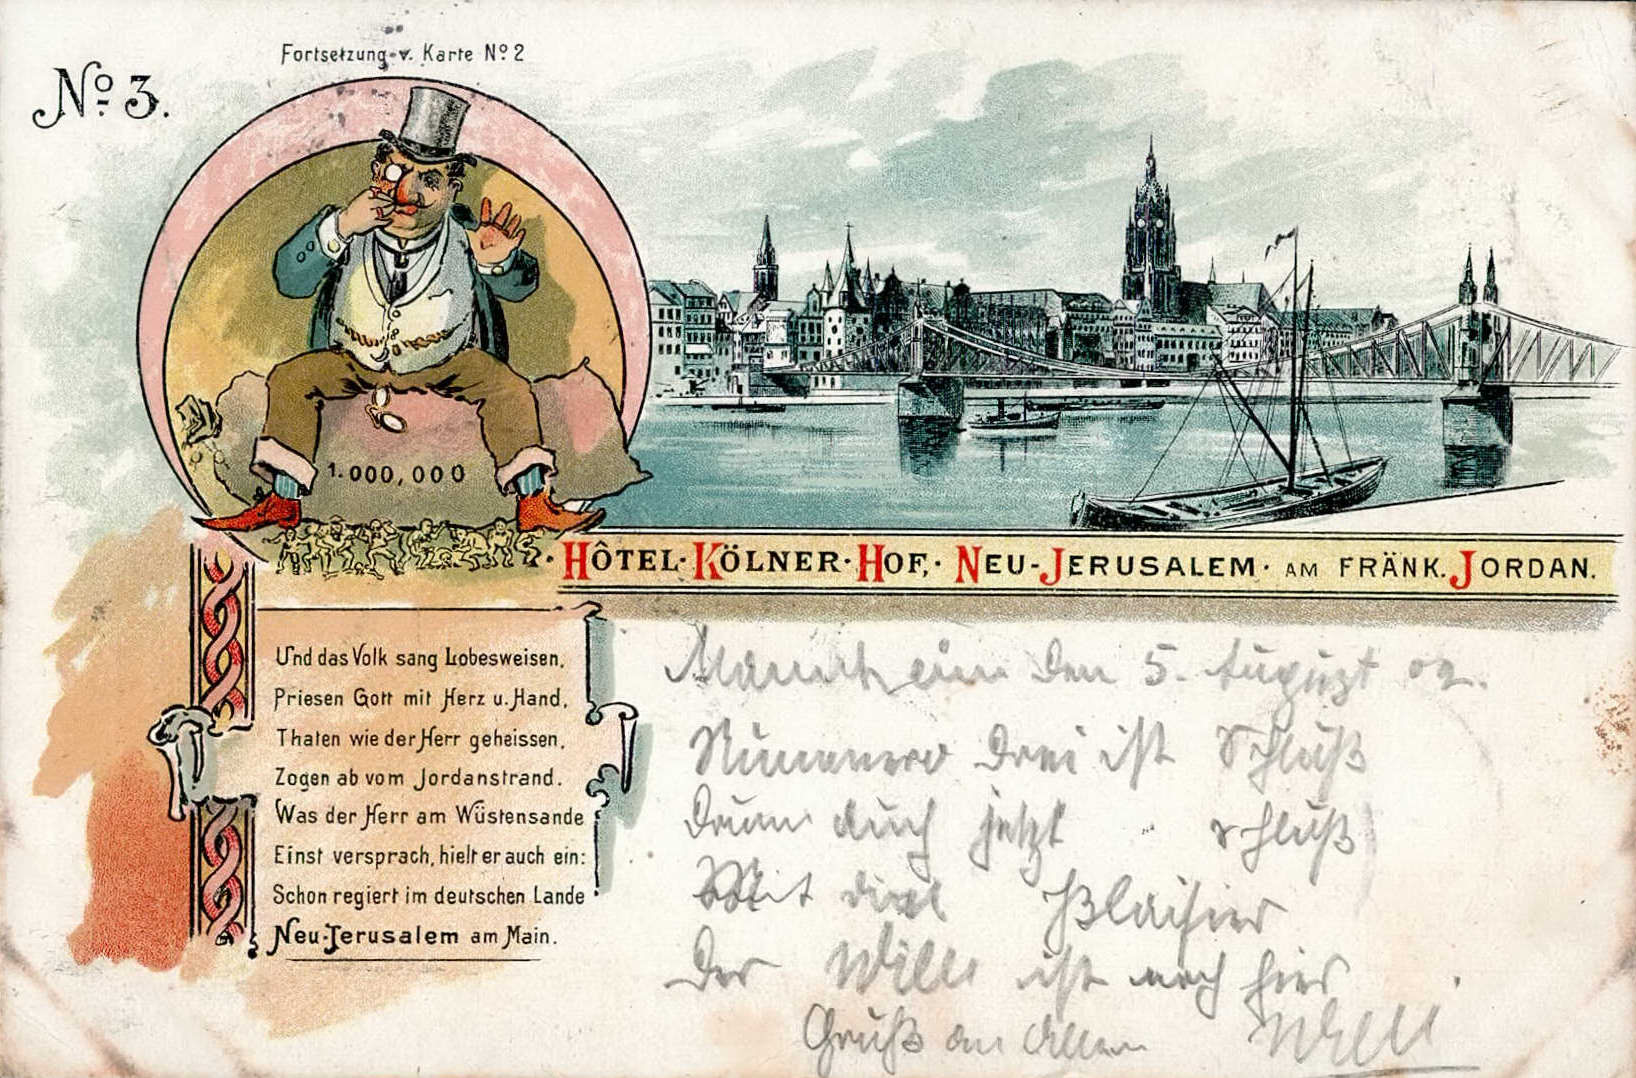 Nº 3.
Fortsetzung v. Karte Nº 2
1.000,000
HÔTEL·KÖLNER·HOF,· NEU-JERUSALEM· AM FRÄNK. JORDAN.
Und das Volk sang Lobesweisen,
Priesen Gott mit Herz u. Hand,
Thaten wie der Herr geheissen,
Zogen ab vom Jordanstrand.
Was der Herr am Wüstensande
Einst versprach, hielt er auch ein:
Schon regiert im deutschen Lande
Neu-Jerusalem am Main.
den 5. August 02.
Nummero Drei ist Schluß
Drum auch jetzt schluß
Mit Blaisier
Der Willi ist noch hier
Gruß an Allen Willi